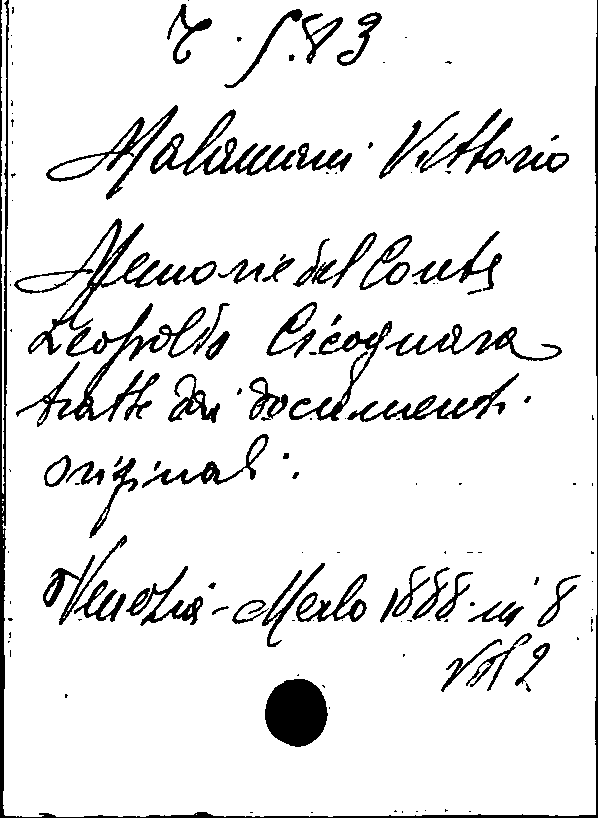 7. S. 83
Malamani Vittorio
Memorie del Conte
Leopoldo Cicognara
tratte dai documenti
originali.
Venezia - Merlo 1888. in 8
Vol 2